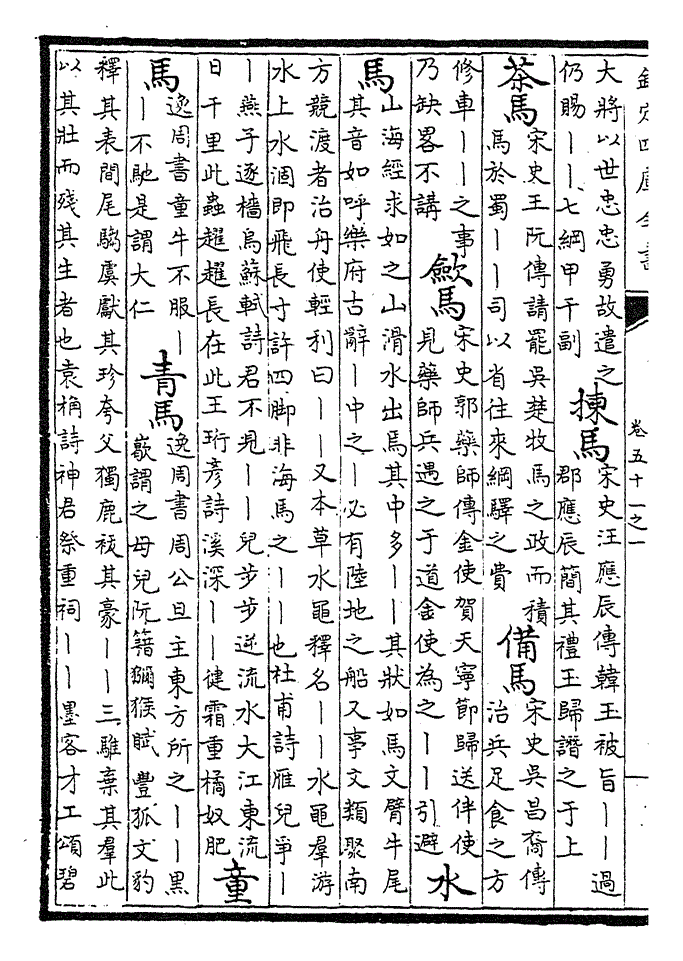 欽定四庫全書
卷五十一之一
大將以世忠忠勇故遣之
仍賜——七綱甲千副
揀馬
宋史汪應辰傳韓玉被旨——過
郡應辰簡其禮玉歸譖之于上
茶馬
宋史王阮傳請罷吳楚牧馬之政而積
馬於蜀——司以省往來綱驛之費
備馬
宋史吳昌裔傳
治兵足食之方
修車——之事
乃缺畧不講
歛馬
宋史郭藥師傳金使賀天寧節歸送伴使
見藥師兵遇之于道金使為之——引避
水
馬
山海經求如之山滑水出焉其中多——其狀如馬文臂牛尾
其音如呼樂府古辭—中之—必有陸地之船又事文類聚南
方競渡者治舟使輕利曰——又本草水黽釋名——水黽羣游
水上水涸即飛長寸許四脚非海馬之——也杜甫詩雁兒爭—
—燕子逐檣烏蘇軾詩君不見——兒步步逆流水大江東流
日千里此蟲趯趯長在此王珩彥詩溪深——健霜重橘奴肥
童
馬
逸周書童牛不服—
—不馳是謂大仁
青馬
逸周書周公旦主東方所之——黑
歇謂之母兒阮籍獮猴賦豐狐文豹
釋其表間尾騶虞獻其珍夸父獨鹿祓其豪——三騅棄其羣此
以其壯而殘其生者也袁桷詩神君祭重祠——墨客才工頌碧